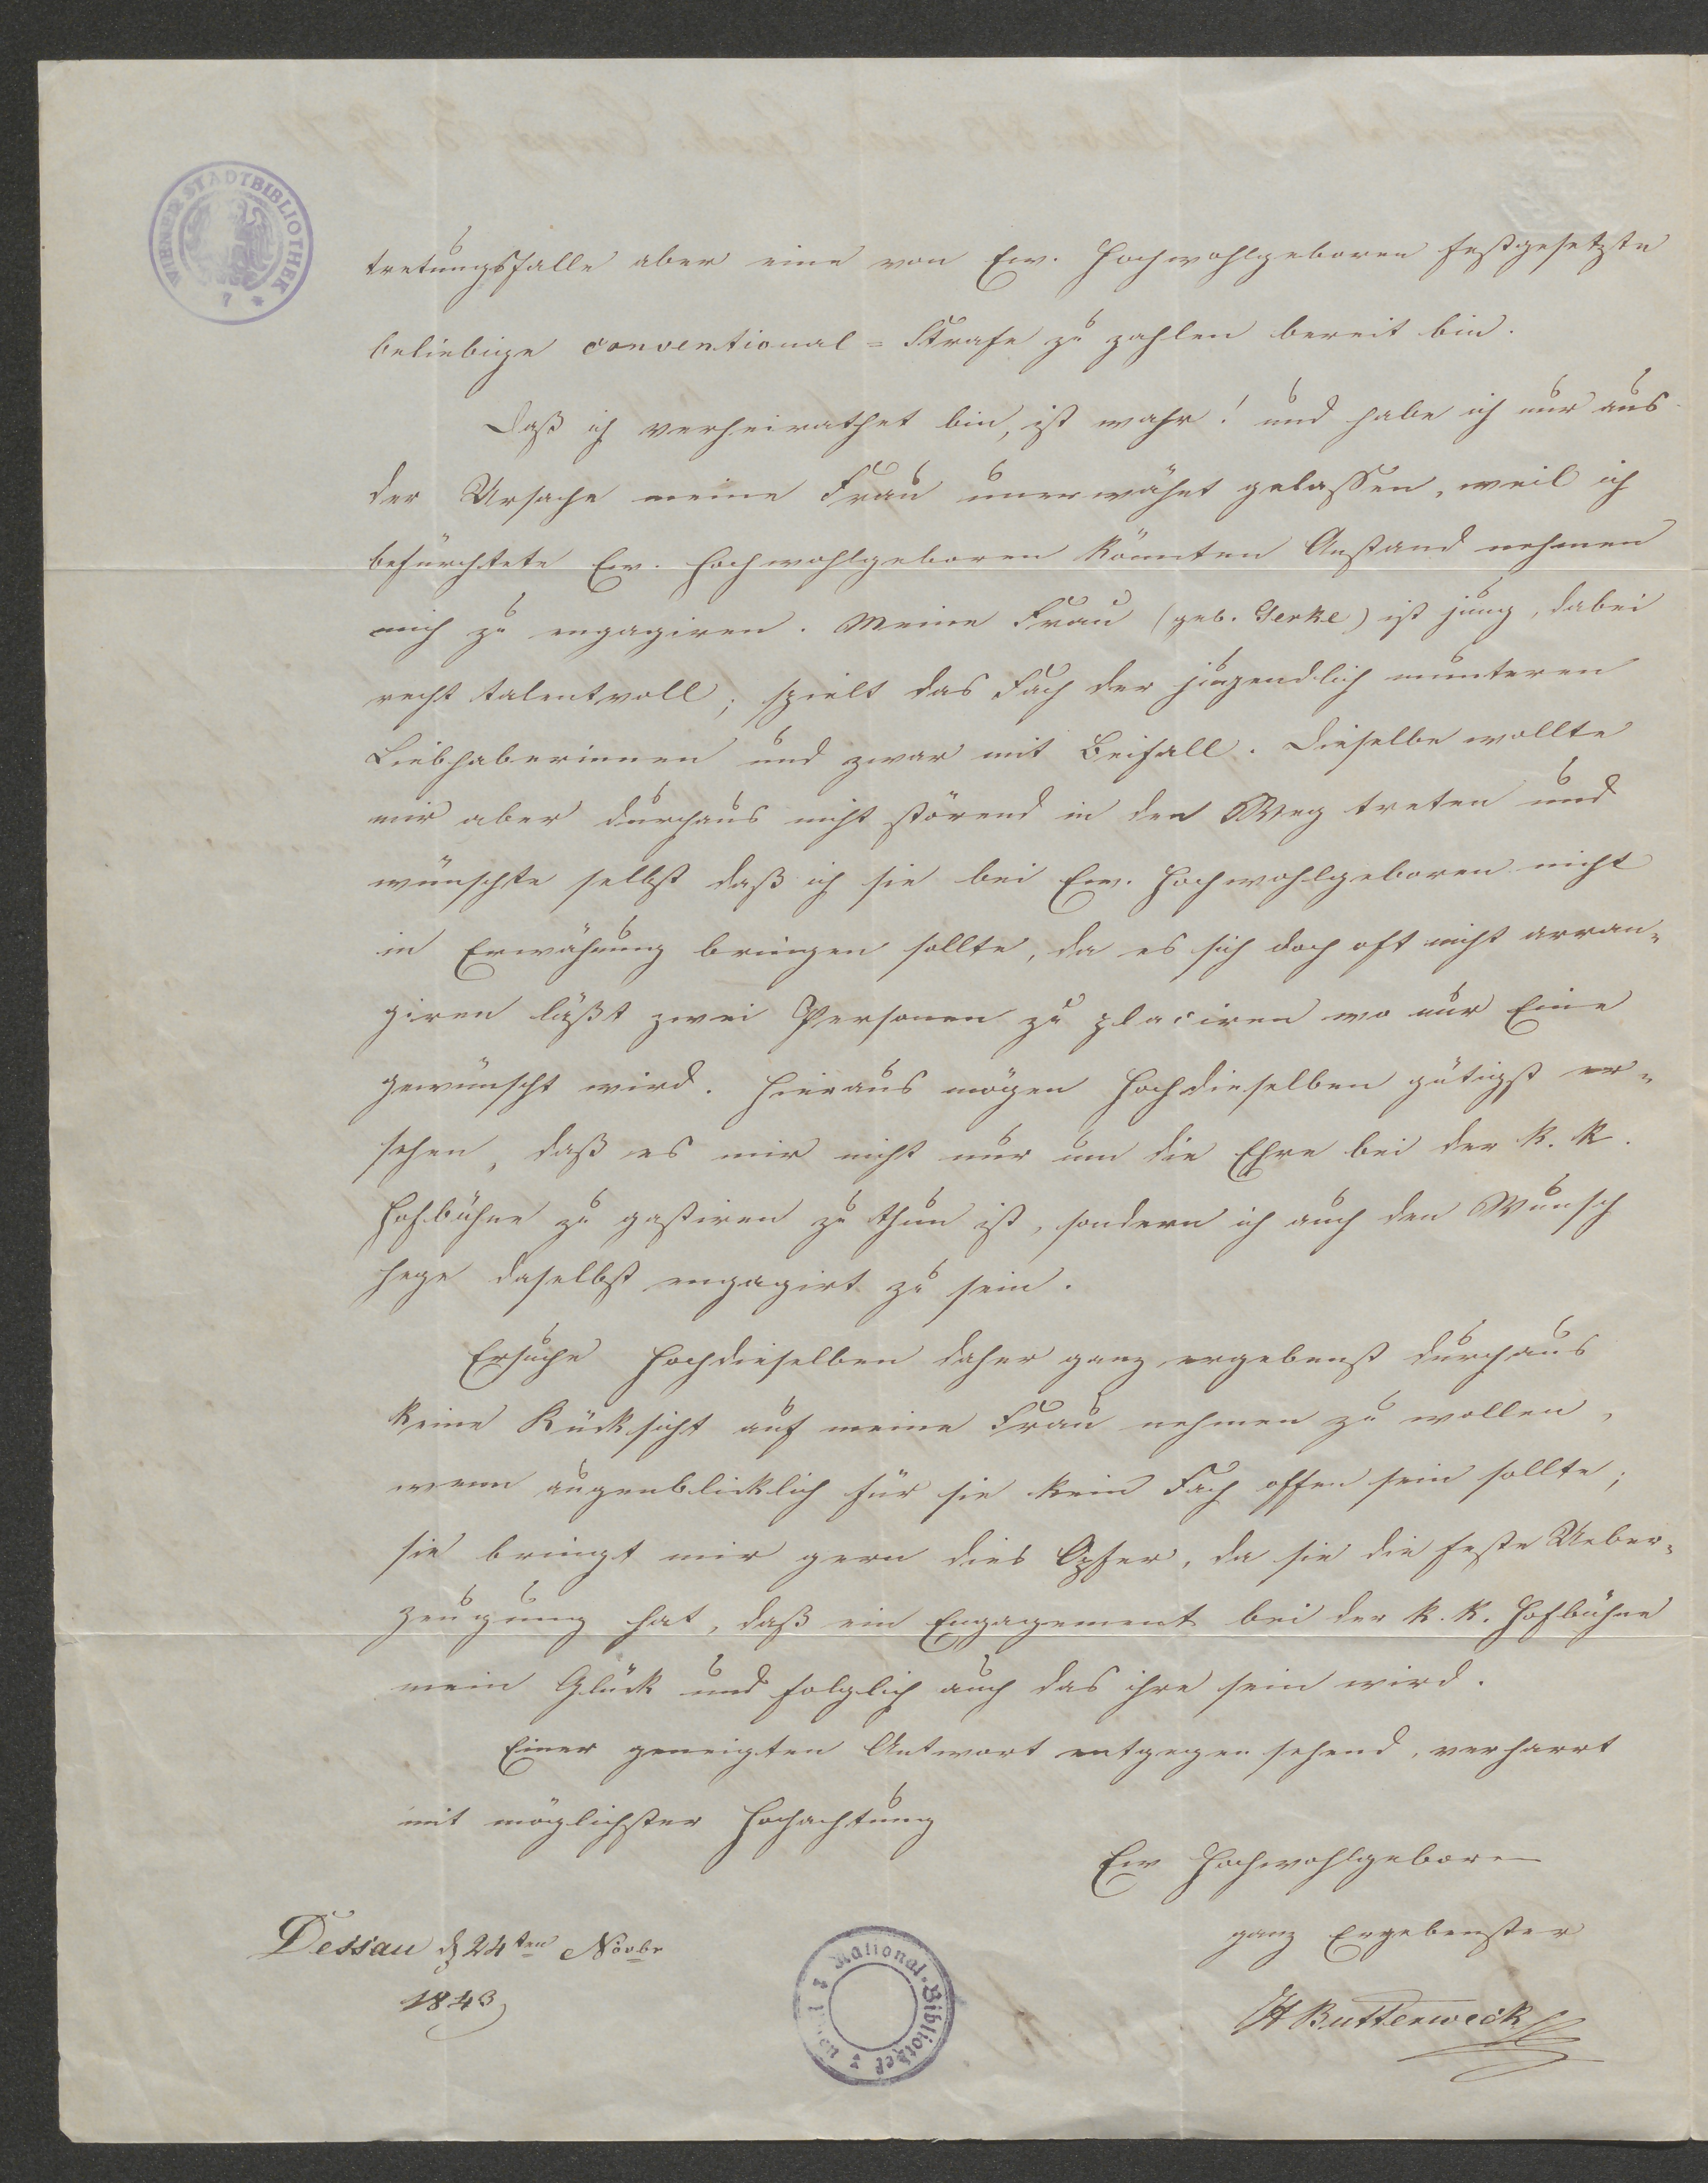 WIENER STADTBIBLIOTHEK
tretungsfalle aber eine von Ew. Hochwohlgeboren festgesetzte
beliebige conventional = Strafe zu zahlen bereit bin.
Daß ich verheirathet bin, ist wahr! und habe ich nur aus
der Ursache meine Frau unerwähnt gelassen, weil ich
befürchtete Ew. Hochwohlgeboren könnten Anstand nehmen
mich zu engagiren. Meine Frau (geb. Gerke) ist jung, dabei
recht talentvoll; spielt das Fach der jugendlich munteren
Liebhaberinnen und zwar mit Beifall. Dieselbe wollte
mir aber durchaus nicht störend in den Weg treten und
wünschte selbst daß ich sie bei Ew. Hochwohlgeboren nicht
in Erwähnung bringen sollte, da es sich doch oft nicht arran-
giren läßt zwei Personen zu placiren wo nur Eine
gewünscht wird. Hieraus mögen Hochdieselben gütigst er-
sehen, daß es mir nicht nur um die Ehre bei der K. K.
Hofbühne zu gastiren zu thun ist, sondern ich auch den Wunsch
hege daselbst engagirt zu sein.
Ersuche Hochdieselben daher ganz ergebenst durchaus
keine Rücksicht auf meine Frau nehmen zu wollen,
wenn augenblicklich für sie kein Fach offen sein sollte;
sie bringt mir gern dies Opfer, da sie die feste Ueber-
zeugung hat, daß ein Engagement bei der K. K. Hofbühne
mein Glück und folglich auch das ihre sein wird.
Einer geneigten Antwort entgegen sehend, verharrt
mit möglichster Hochachtung
Ew Hochwohlgeboren
ganz Ergebenster
H Butterweck
Dessau d 24ten Novbr
1843
National-Bibliothek Wien